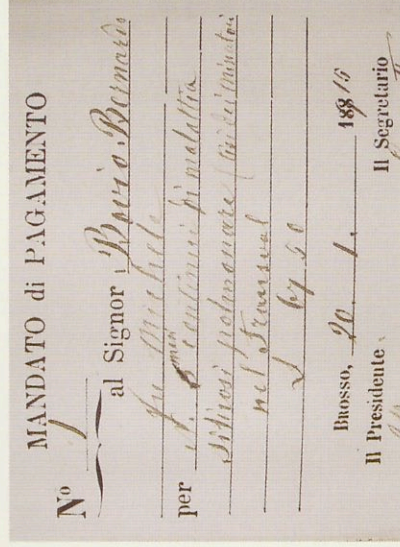 MANDATO di PAGAMENTO
Nº 1
al Signor Bovio Bernardo
fu Michele
per N. 5 mesi continui di malattia
silicosi polmonare (tisi dei minatori
nel Transval
L 67,50
BROSSO, 20. 1. 1915
Il Presidente
Il Segretario